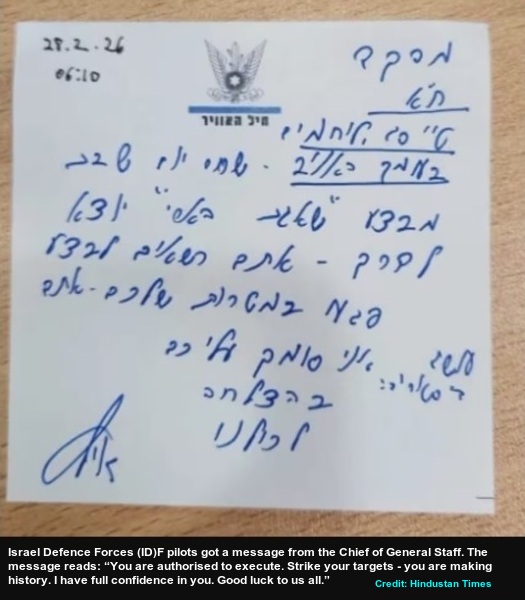 28.2.26
06:10
מפקד
ח"א
חיל האוויר
יום שבת
מבצע "שאגת הארי" יוצא
לדרך - אתם רשאים לבצע
פגעו במטרות שלכם - אתם
אני סומך עליכם
בהצלחה
לכולנו
Israel Defence Forces (ID)F pilots got a message from the Chief of General Staff. The
message reads: “You are authorised to execute. Strike your targets - you are making
history. I have full confidence in you. Good luck to us all.”
Credit: Hindustan Times